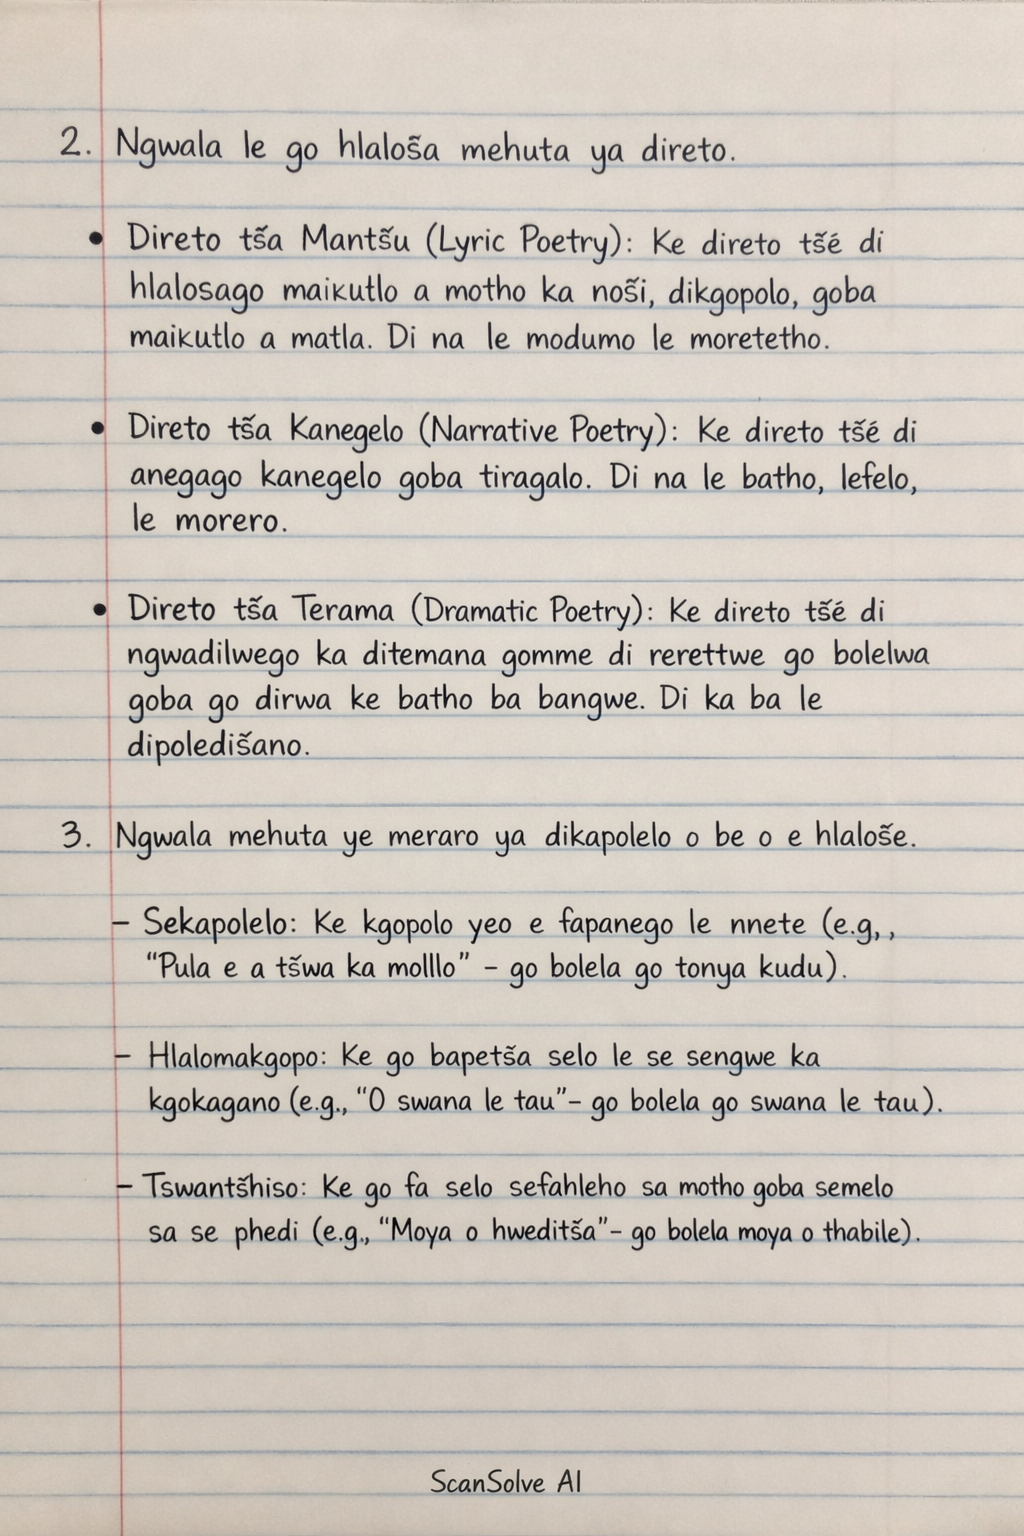 2. Ngwala le go hlaloša mehuta ya direto.
• Direto tša Mantšu (Lyric Poetry): Ke direto tšé di
hlalosago maikutlo a motho ka noši, dikgopolo, goba
maikutlo a matla. Di na le modumo le moretetho.
• Direto tša Kanegelo (Narrative Poetry): Ke direto tšé di
anegago kanegelo goba tiragalo. Di na le batho, lefelo,
le morero.
• Direto tša Terama (Dramatic Poetry): Ke direto tšé di
ngwadilwego ka ditemana gomme di rerettwe go bolelwa
goba go dirwa ke batho ba bangwe. Di ka ba le
dipoledišano.
3. Ngwala mehuta ye meraro ya dikapolelo o be o e hlaloše.
– Sekapolelo: Ke kgopolo yeo e fapanego le nnete (e.g, ,
“Pula e a tšwa ka molllo” – go bolela go tonya kudu).
– Hlalomakgopo: Ke go bapetša selo le se sengwe ka
kgokagano (e.g., “O swana le tau”– go bolela go swana le tau).
– Tswantšhiso: Ke go fa selo sefahleho sa motho goba semelo
sa se phedi (e.g., “Moya o hweditša”– go bolela moya o thabile).
ScanSolve AI